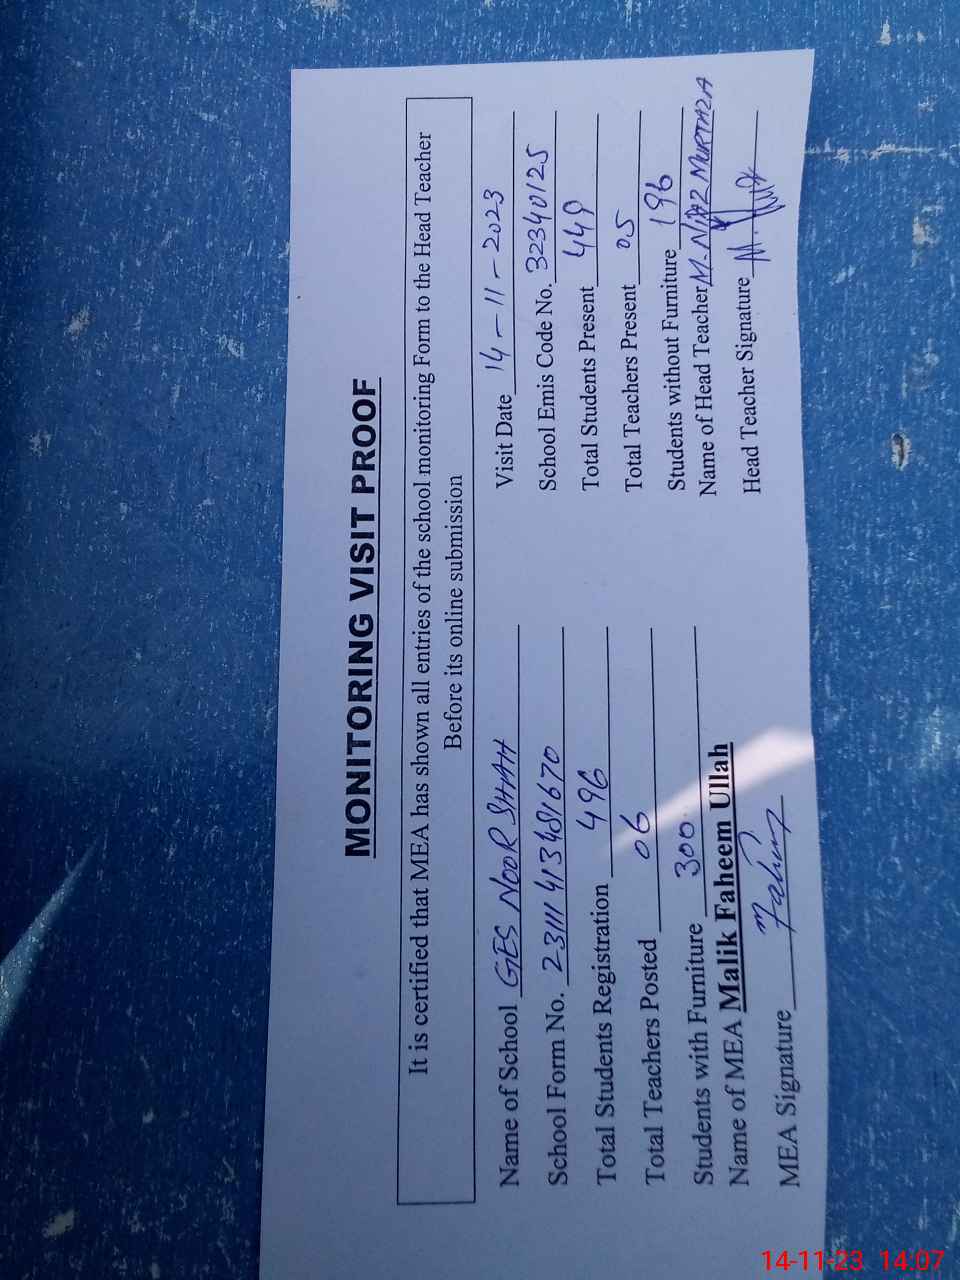 MONITORING VISIT PROOF
It is certified that MEA has shown all entries of the school monitoring Form to the Head Teacher
Before its online submission
Name of School GES NOOR SHAH Visit Date 14-11-2023
School Form No. 23111413481670 School Emis Code No. 32340125
Total Students Registration 496 Total Students Present 449
Total Teachers Posted 06 Total Teachers Present 05
Students with Furniture 300 Students without Furniture 196
Name of MEA Malik Faheem Ullah Name of Head Teacher M. NIAZ MURTAZA
MEA Signature Fahim Head Teacher Signature
14-11-23 14:07